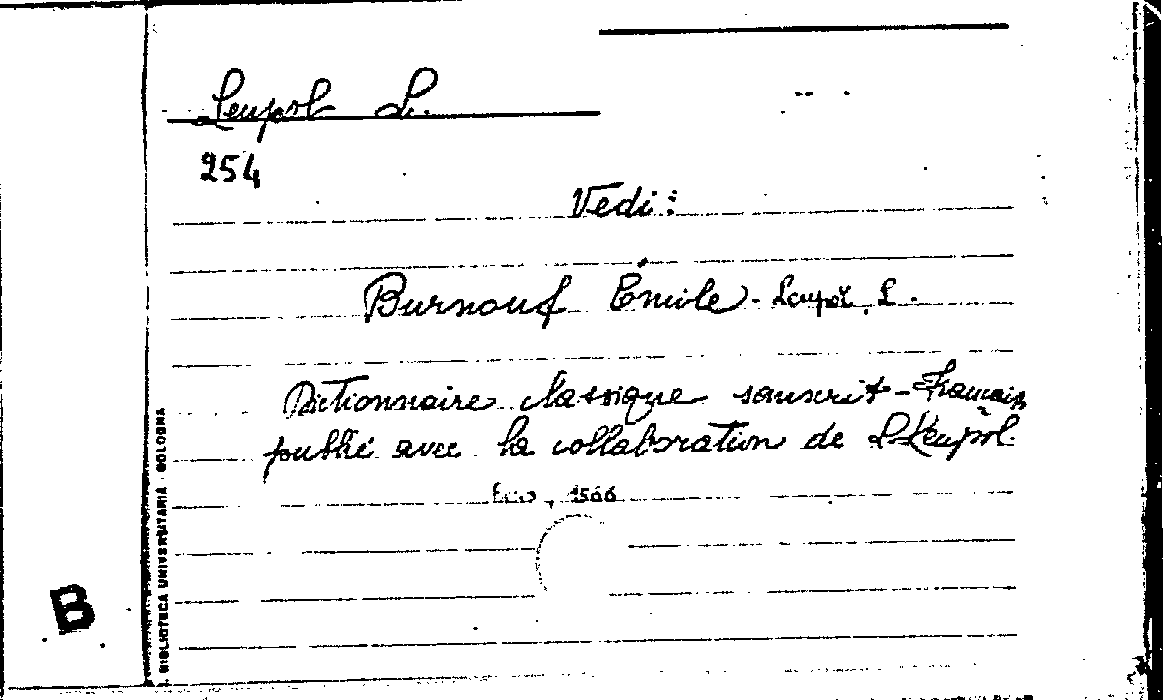 Leupol L.
254
Vedi:
Burnouf Émile - Leupol, L.
Dictionnaire classique sanscrit-français
publié avec la collaboration de L. Leupol.
B
BIBLIOTECA UNIVERSITARIA - BOLOGNA